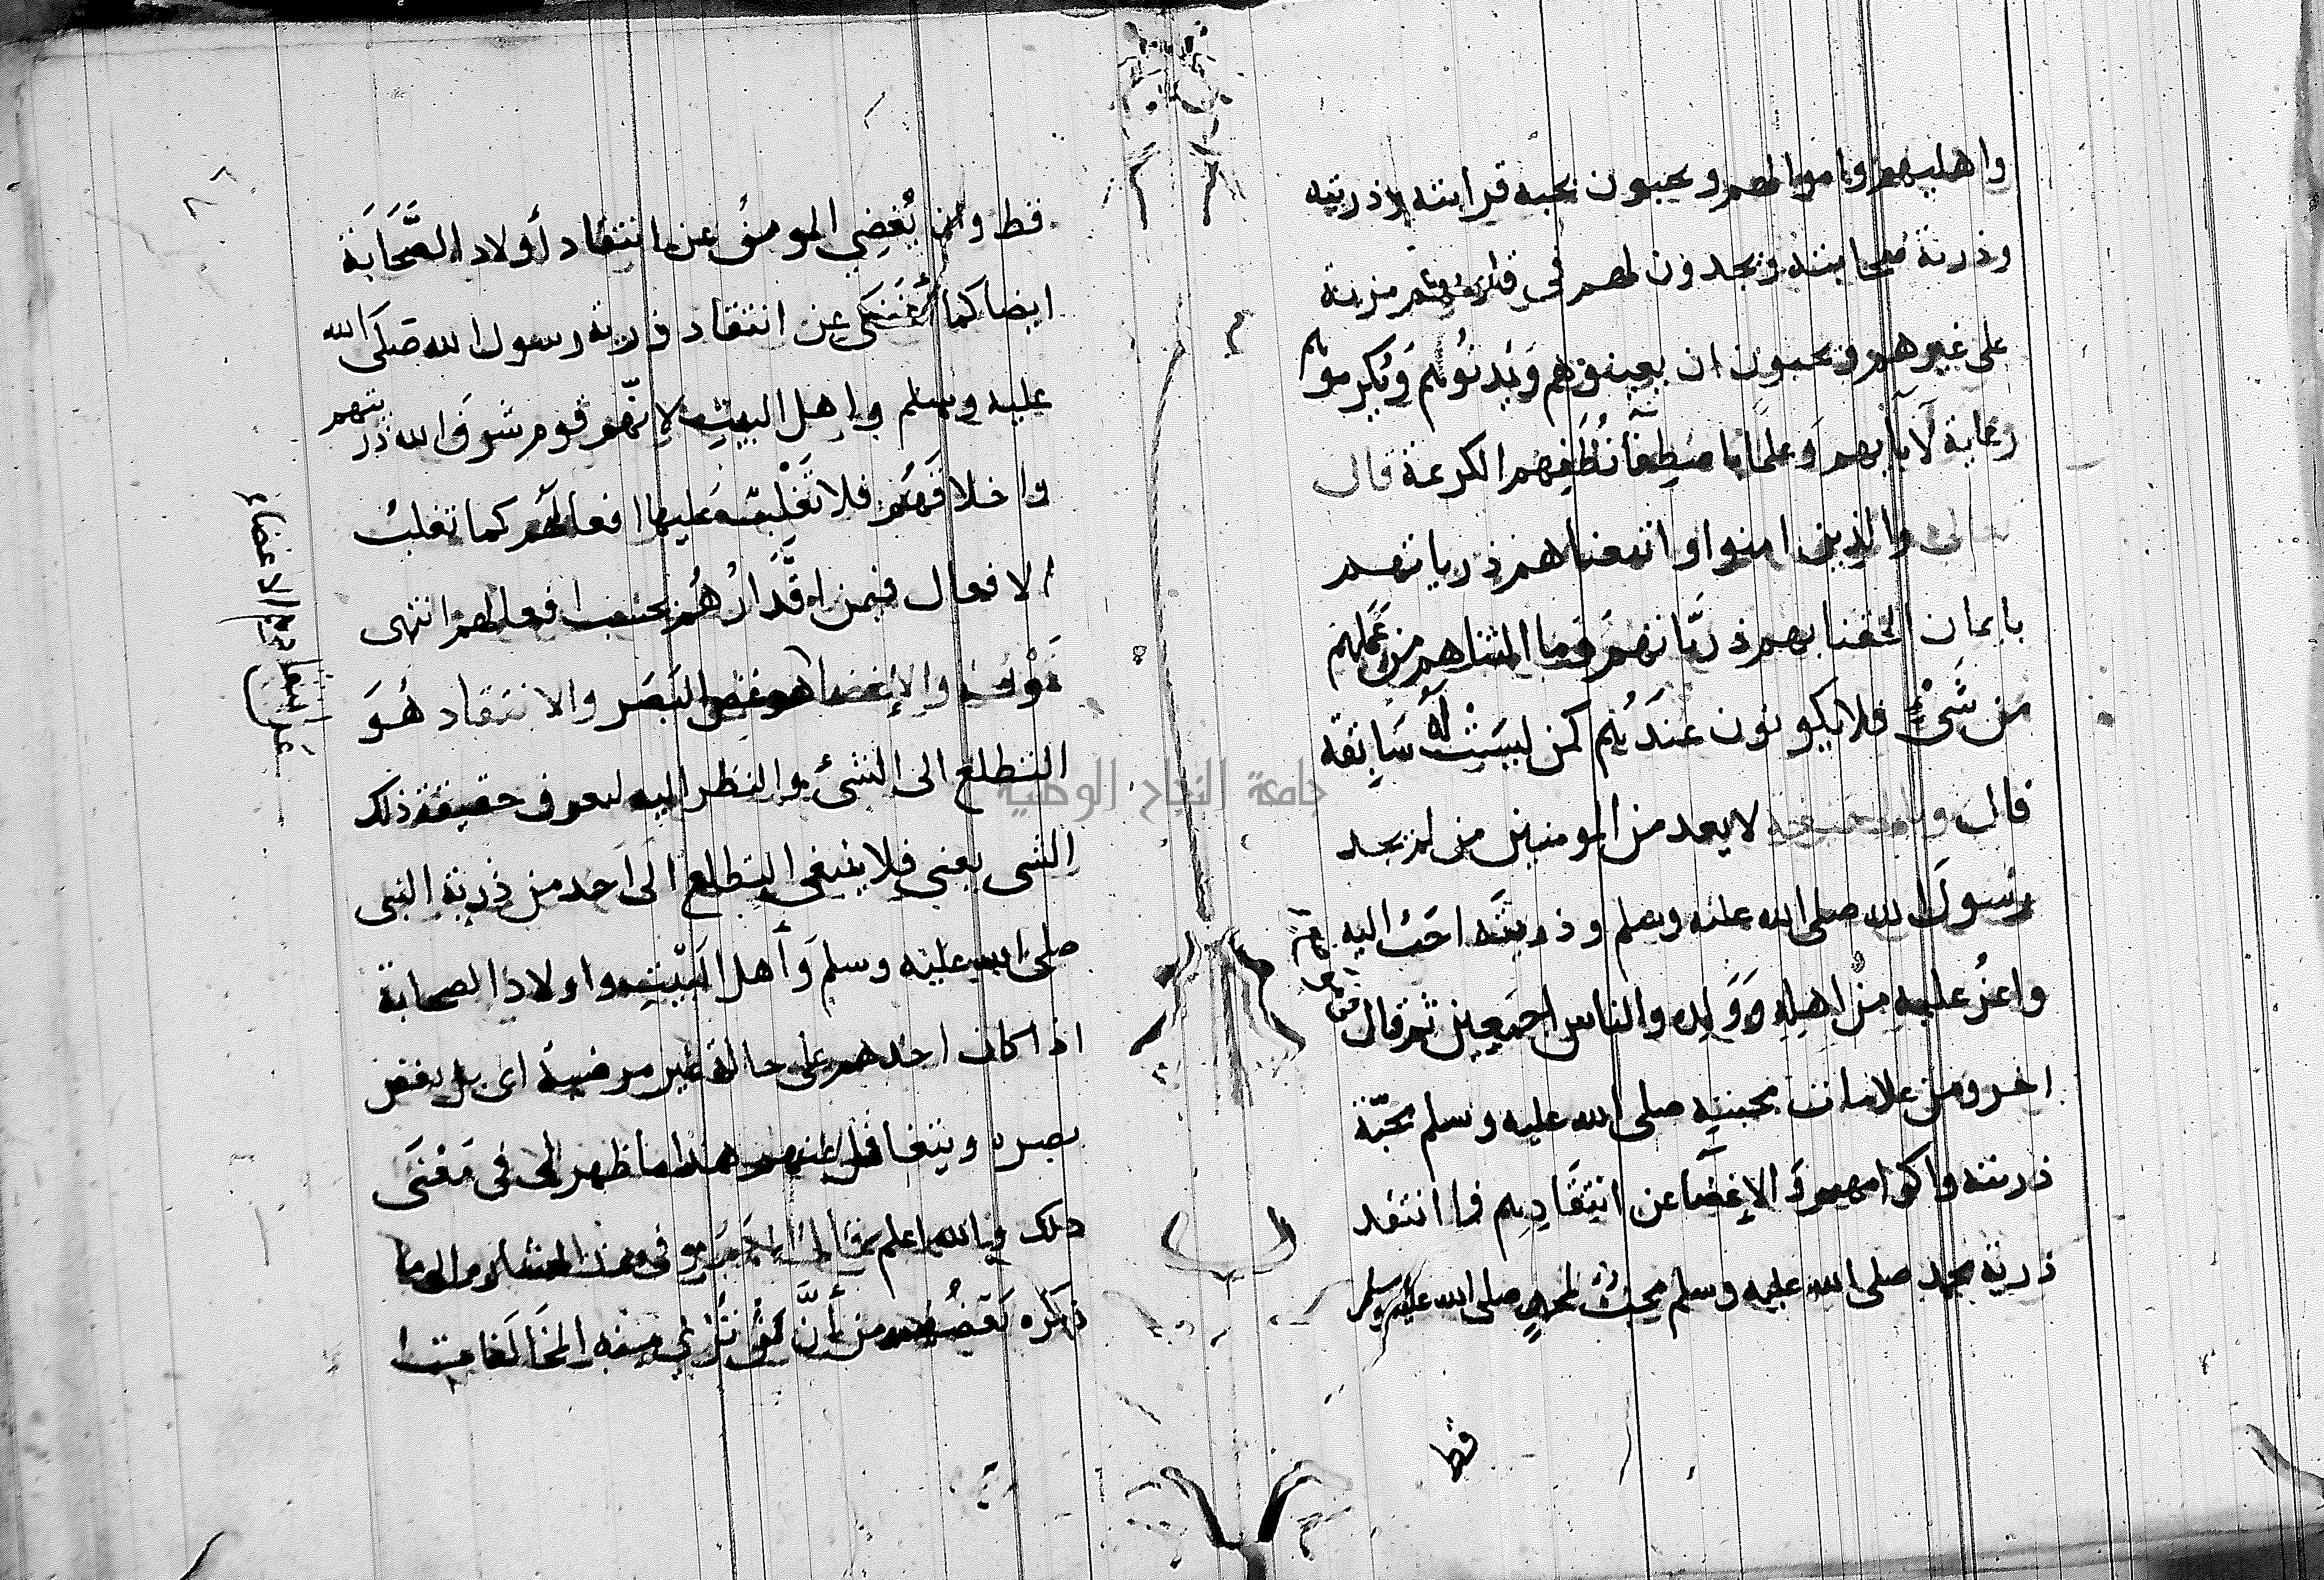 واهليهم واموالهم ويحبون بحبه قرابته وذريته
وذرية صحابته ويجدون لهم في قلوبهم مزية
على غيرهم ويحبون ان يعينوهم ويدنوهم ويكرموهم
رعاية لآبآيهم وعلما باصطفآ نطفهم الكريمة قال
تعالى والذين امنوا واتبعناهم ذرياتهم
بايمان الحقنا بهم ذرياتهم وما التناهم من عملهم
من شيء فلا يكونون عندهم كمن ليست له سابقة
قال لا يعد من المومنين من لم يجد
رسول الله صلى الله عليه وسلم وذريته احب اليه
واعز عليه من اهله وولده والناس اجمعين ثم قال
اخر ومن علامات محبته صلى الله عليه وسلم محبة
ذريته واكرامهم والإغضآ عن انتقادهم فما انتقد
ذرية محمد صلى الله عليه وسلم محب لمحمد صلى الله عليه وسلم
قط
قط وان يغضي المومن عن انتقاد أولاد الصحابة
ايضا كما أغضى عن انتقاد ذرية رسول الله صلى الله
عليه وسلم واهل البيت لانهم قوم شرف الله ذريتهم
واخلاقهم فلا تغلب عليها افعالهم كما تغلب
الافعال فيمن اقدارهم بحسب افعالهم انتهى
قوله والإغضا هو غض البصر والانتقاد هو
التطلع الى الشيء والنظر اليه ليعرف حقيقة ذلك
الشي يعني فلا ينبغي التطلع الى احد من ذرية النبي
صلى الله عليه وسلم وأهل البيت واولاد الصحابة
اذا كان احدهم على حالة غير مرضية اى بل يغض
بصره ويتغافل عنهم هذا ما ظهر لي في معنى
ذلك والله اعلم
ذكره بعضهم من أن منه المخالفات